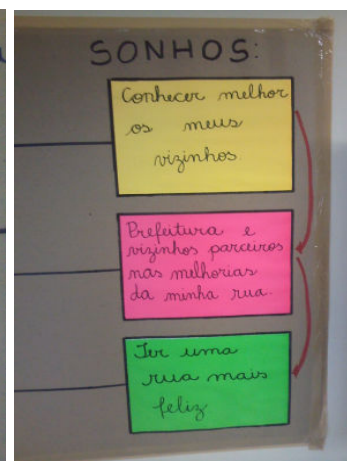 SONHOS:
Conhecer melhor
os meus
vizinhos.
Prefeitura e
vizinhos parceiros
nas melhorias
da minha rua.
Ter uma
rua mais
feliz